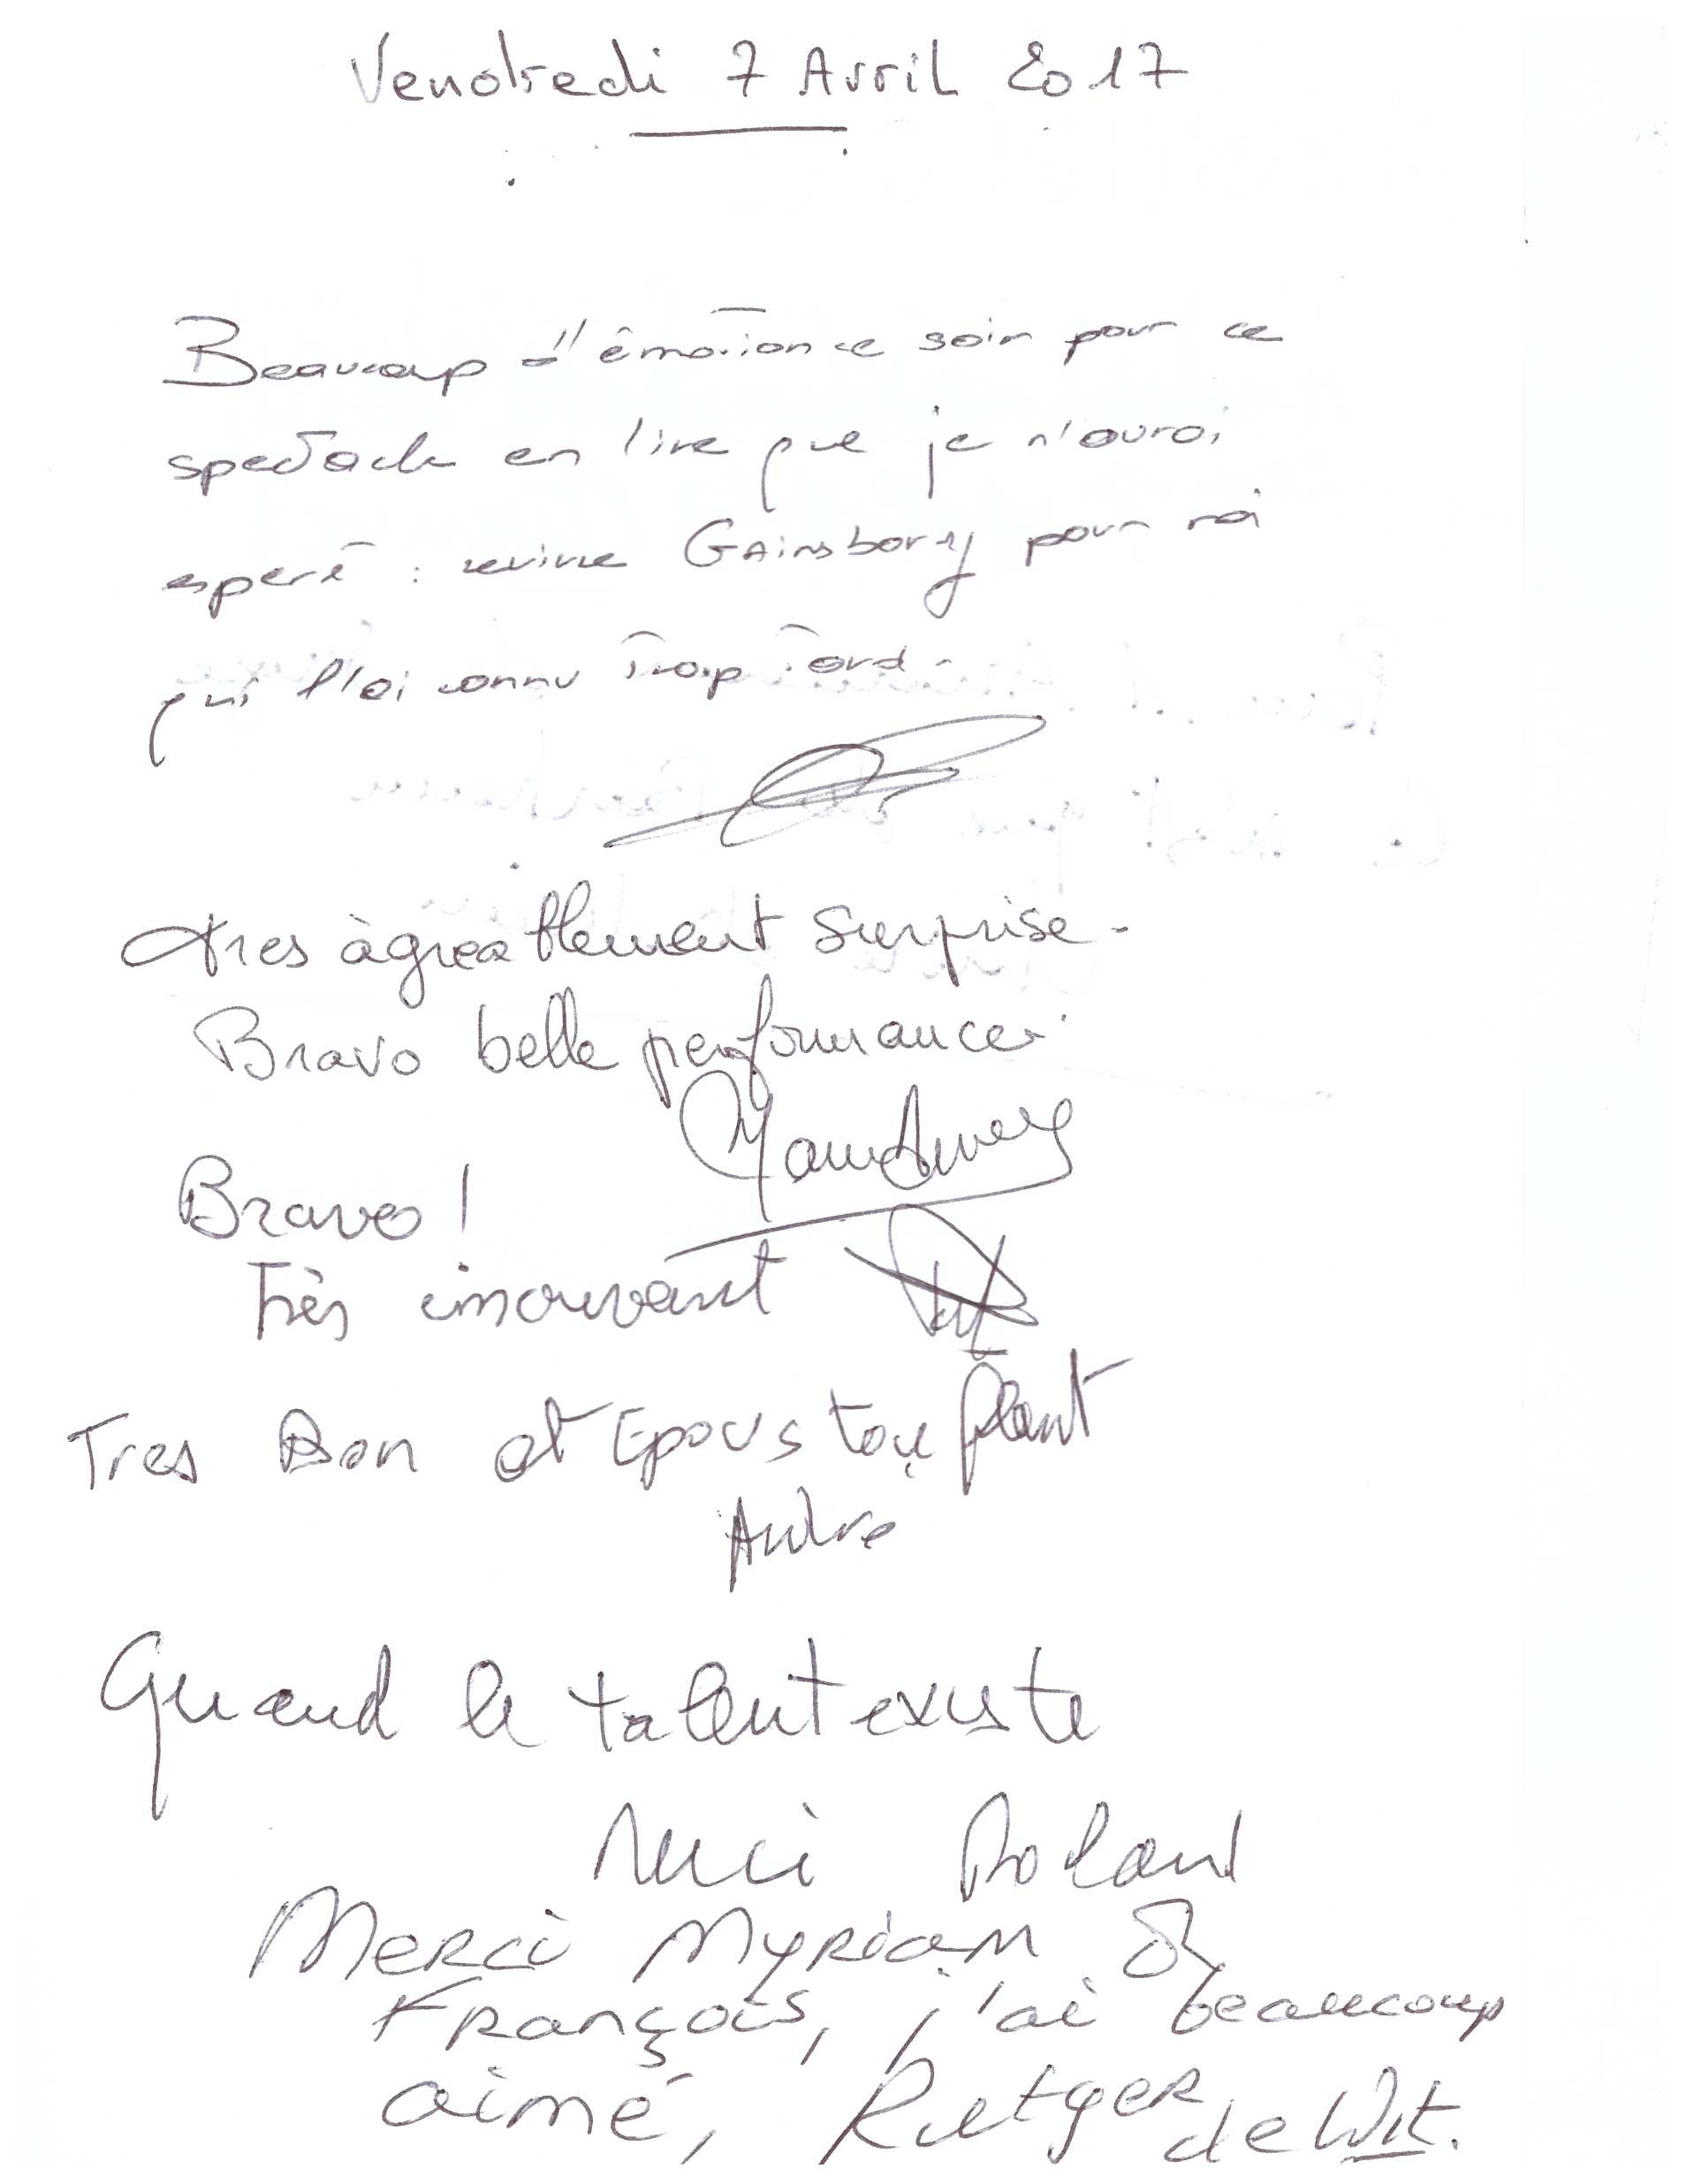 Vendredi 7 Avril 2017
Beaucoup d'émotion ce soir pour ce
spectacle en live que je n'aurai
esperé : revivre Gainsborg pour moi
qui l'ai connu trop tard.
très àgreablement surprise.
Bravo belle performance.
Bravo !
Très émouvant
Tres Bon et Epous tou flant
Quand le talent existe
Merci Roland
Merci Myriam &
François, j'ai beaucoup
aimé, Rutger
de Wit.